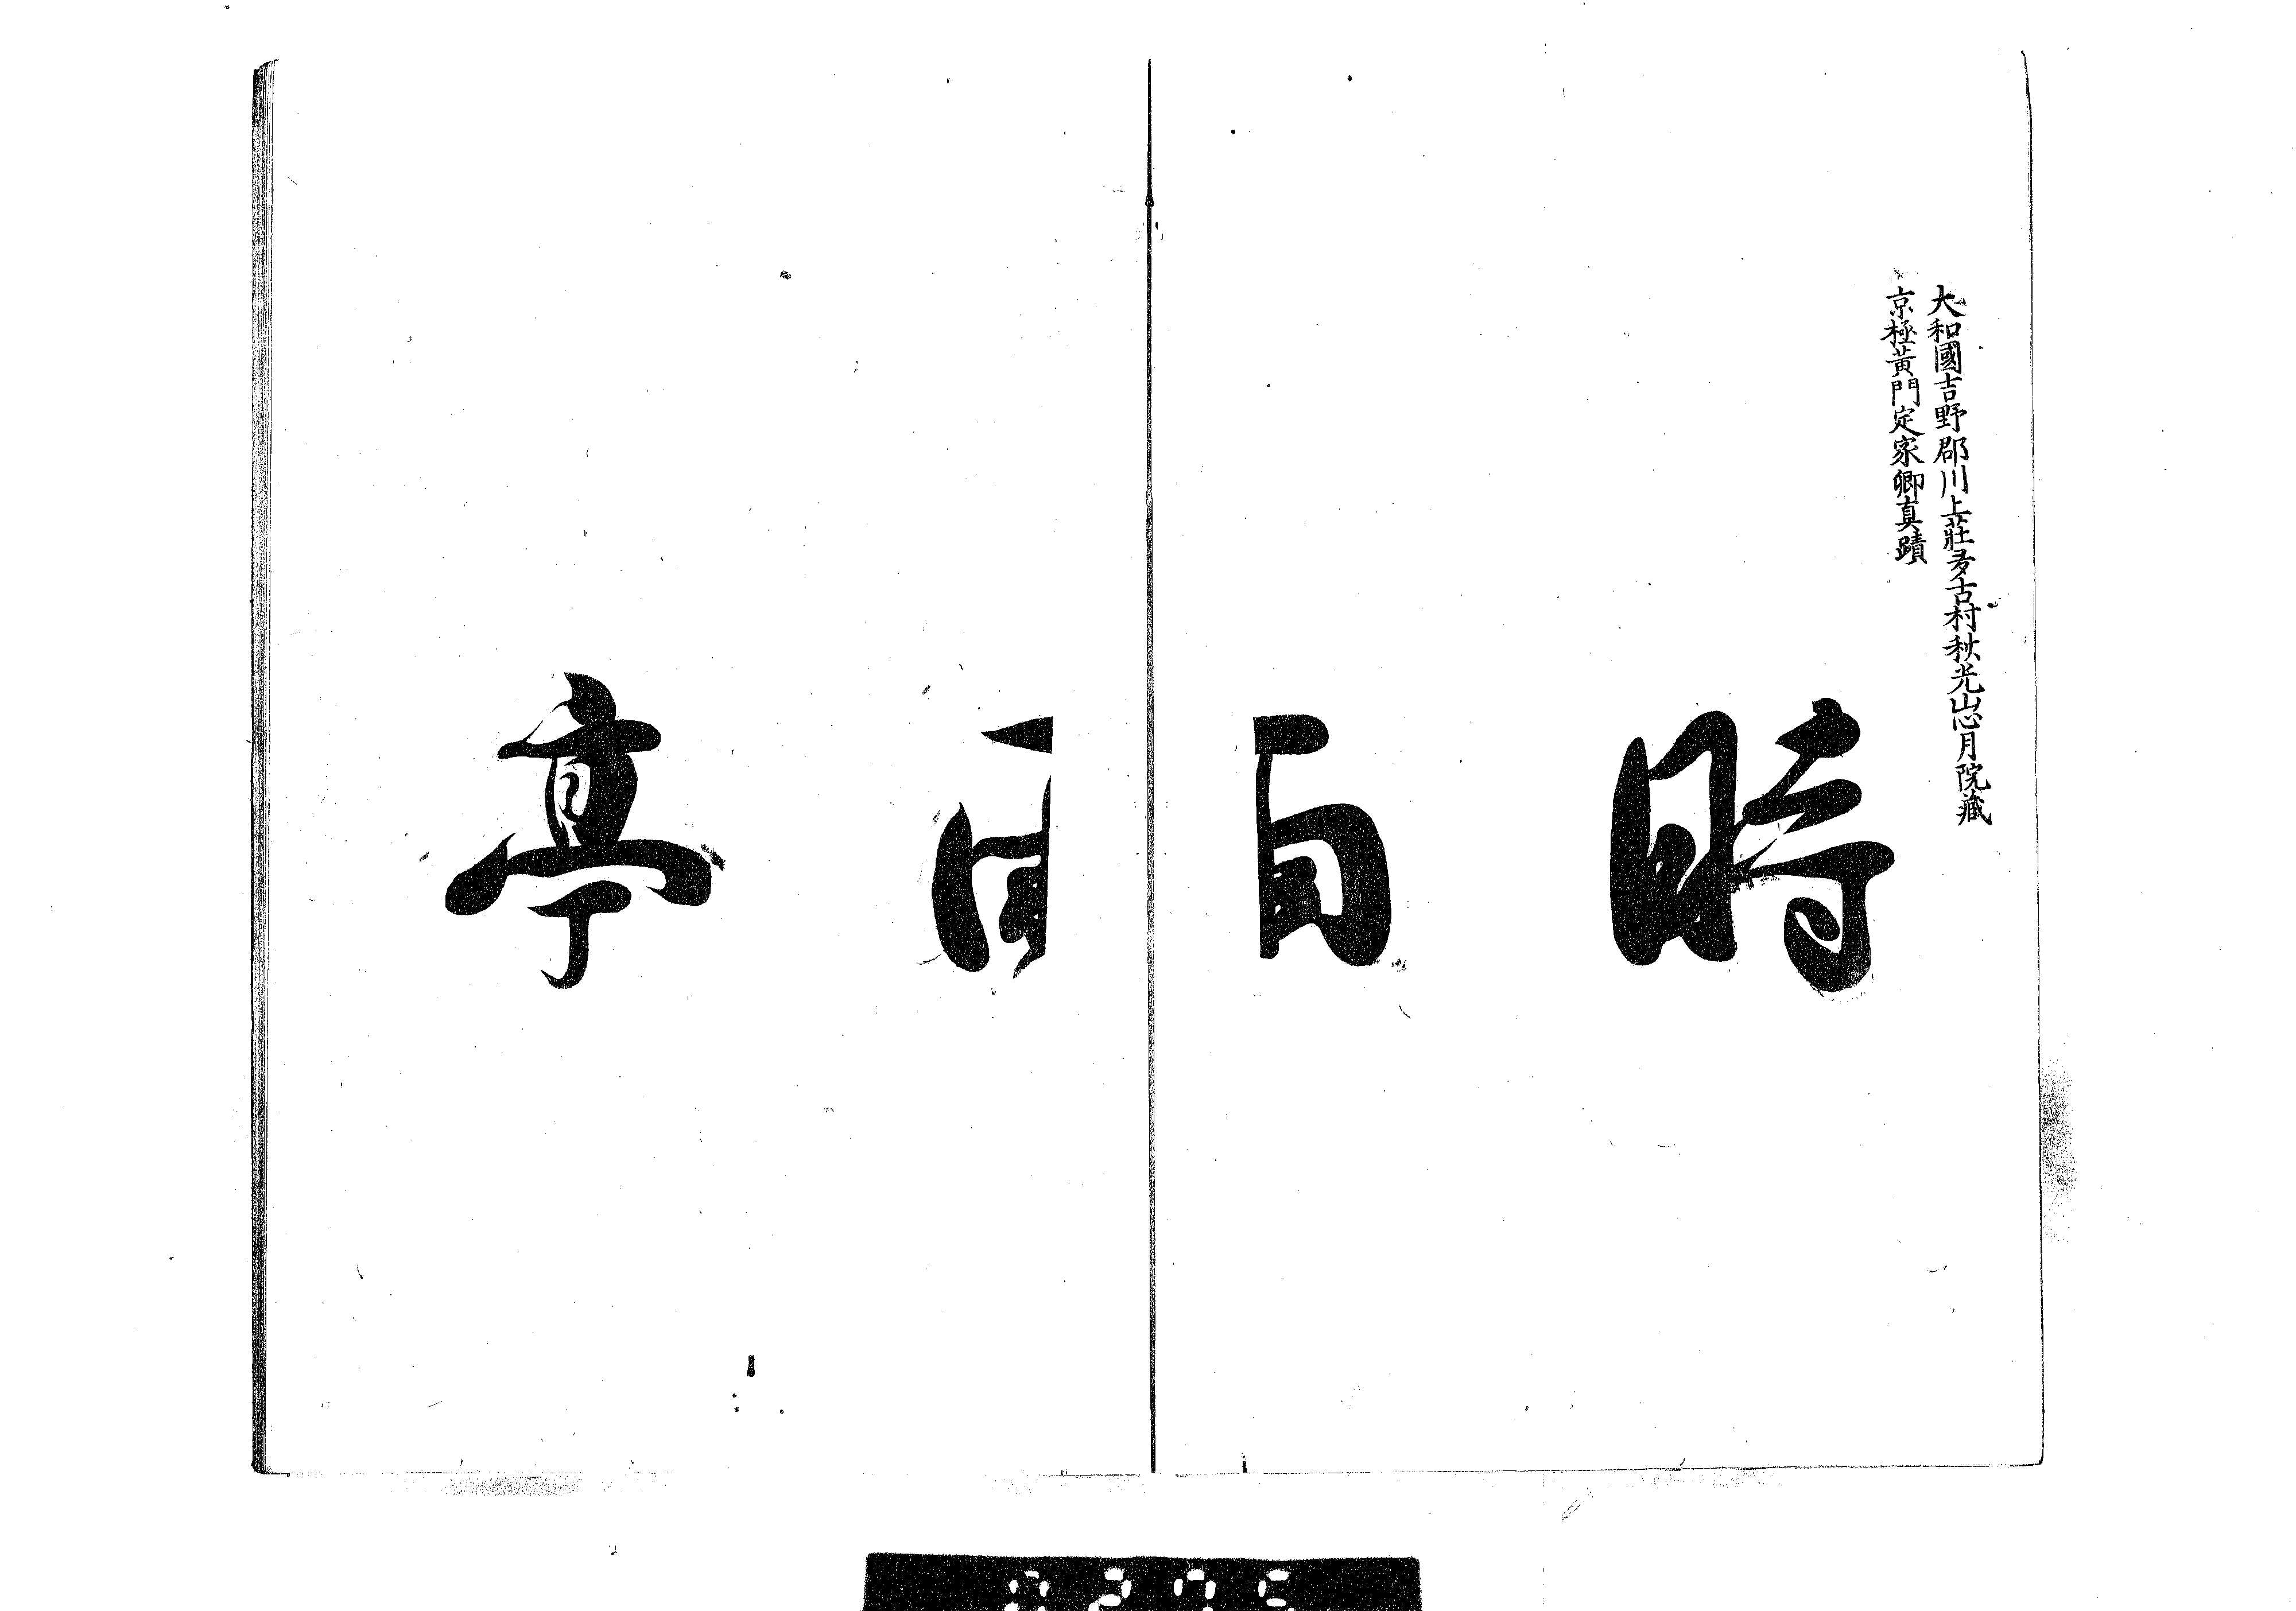 大和國吉野郡川上莊多古村秋光山心月院藏
京極黃門定家卿真蹟
時雨亭